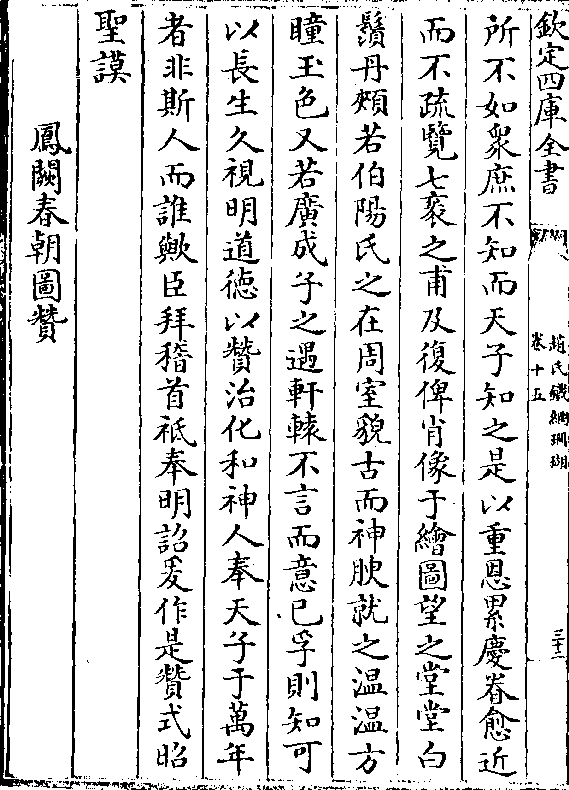 欽定四庫全書
趙氏鐵網珊瑚
卷十五
三十二
所不如衆庶不知而天子知之是以重恩累慶眷愈近
而不疏覽七袠之甫及復俾肖像于繪圖望之堂堂白
鬚丹頰若伯陽氏之在周室貌古而神腴就之温温方
瞳玉色又若廣成子之遇軒轅不言而意已孚則知可
以長生久視明道德以贊治化和神人奉天子于萬年
者非斯人而誰歟臣拜稽首祗奉明詔爰作是贊式昭
聖謨
鳳闕春朝圖贊